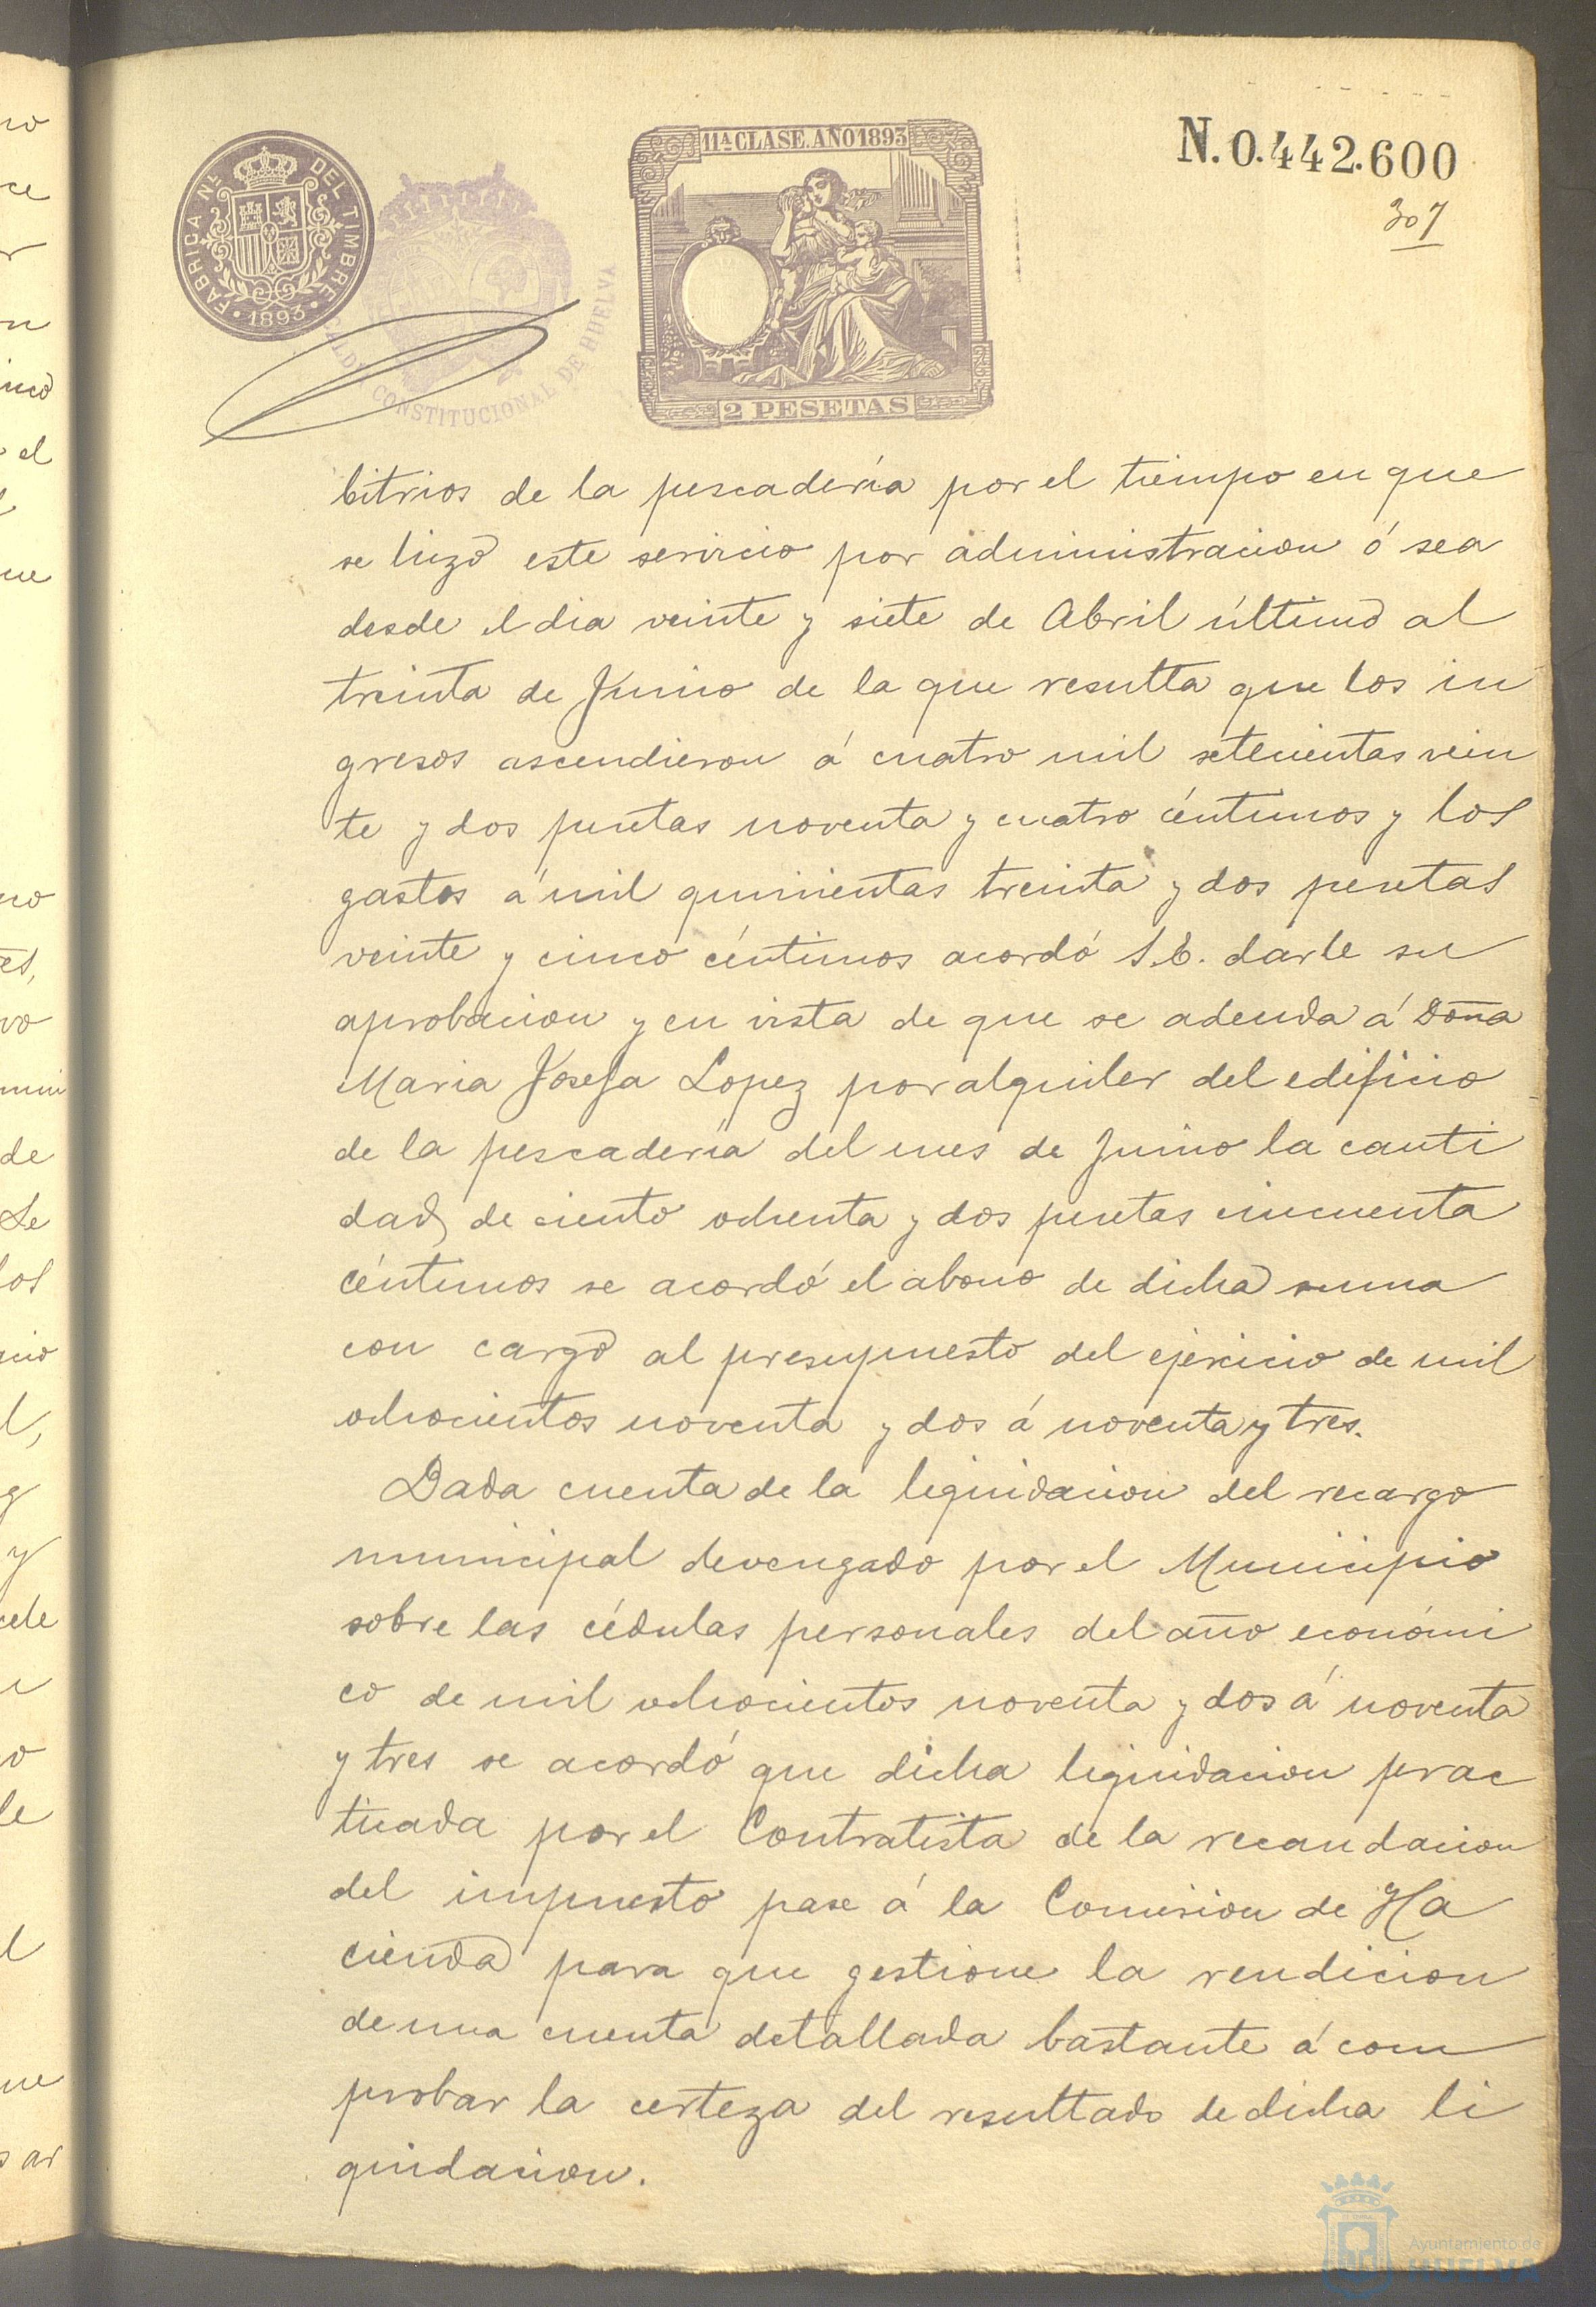 FABRICA NL. DEL TIMBRE
1893
CONSTITUCIONAL DE HUELVA
11ª CLASE. AÑO 1893
2 PESETAS
N. 0.442.600
307
bitrios de la pescadería por el tiempo en que
se hizo este servicio por administracion ó sea
desde el dia veinte y siete de Abril último al
treinta de Junio de la que resulta que los in
gresos ascendieron á cuatro mil setecientas vein
te y dos pesetas noventa y cuatro céntimos y los
gastos á mil quinientas treinta y dos pesetas
veinte y cinco céntimos acordó S.E. darle su
aprobacion y en vista de que se adeuda á Doña
Maria Josefa Lopez por alquiler del edificio
de la pescadería del mes de Junio la canti
dad de ciento ochenta y dos pesetas cincuenta
céntimos se acordó el abono de dicha suma
con cargo al presupuesto del ejercicio de mil
ochocientos noventa y dos á noventa y tres.
Dada cuenta de la liquidacion del recargo
municipal devengado por el Municipio
sobre las cédulas personales del año económi
co de mil ochocientos noventa y dos á noventa
y tres se acordó que dicha liquidacion prac
ticada por el Contratista de la recaudacion
del impuesto pase á la Comision de Ha
cienda para que gestione la rendicion
de una cuenta detallada bastante á com
probar la certeza del resultado de dicha li
quidacion.
Ayuntamiento de
HUELVA